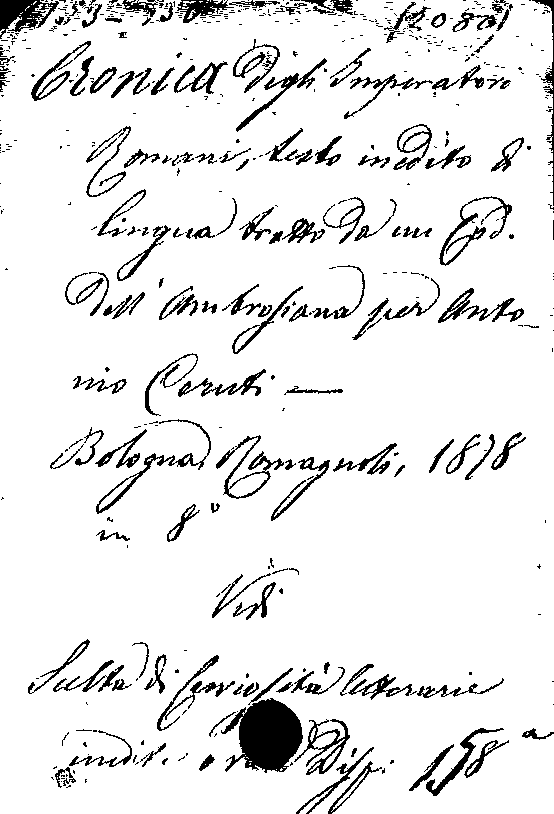 153-530 (2080)
Cronica degli Imperatori
Romani, testo inedito di
lingua tratto da un Cod.
dell' Ambrosiana per Anto_
nio Ceruti —
Bologna, Romagnoli, 1878
in 8°
Vedi
Scelta di Curiosità letterarie
inedite o rare Disp. 158ª